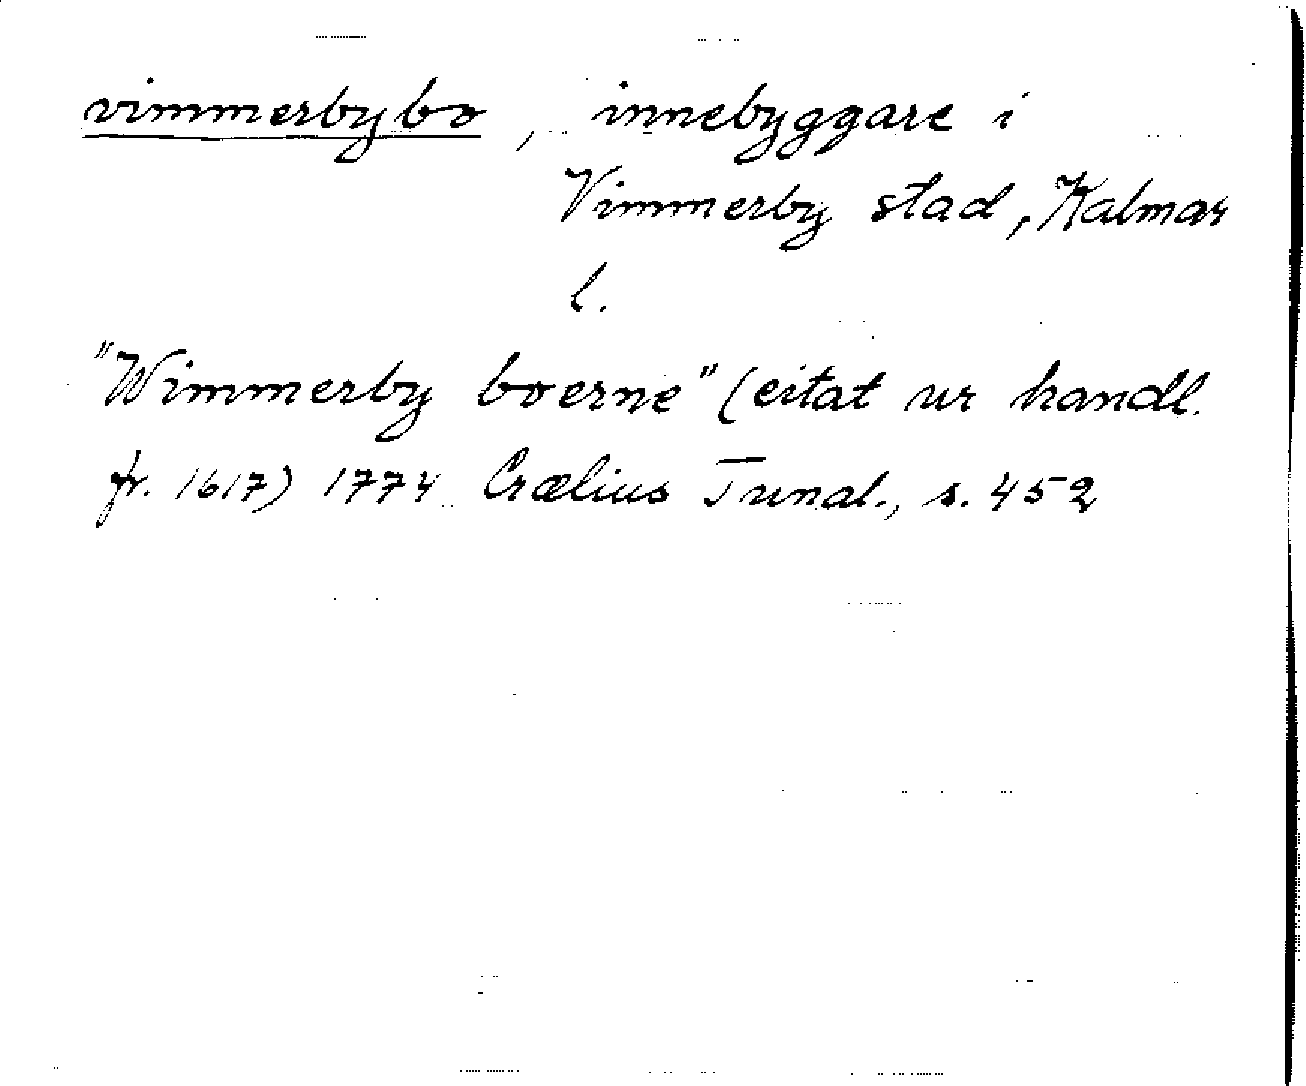 vimmerbybo, innebyggare i
Vimmerby stad, Kalmar
l.
"Wimmerby boerne" (citat ur handl.
fr. 1617) 1774 Crælius Tunal., s. 452